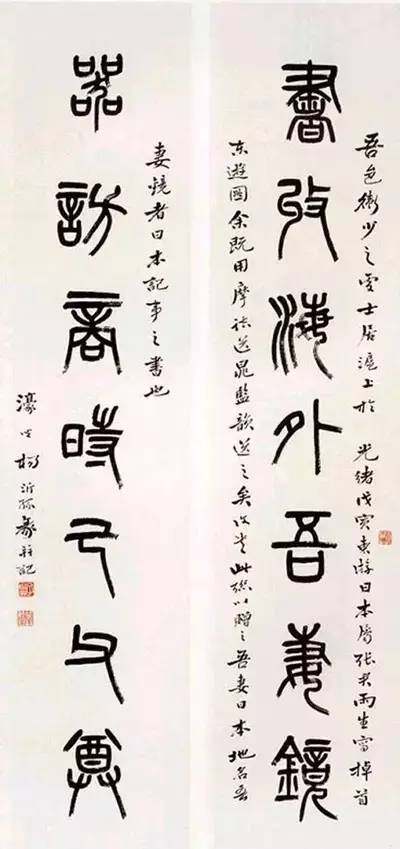 吾邑衛少之雲士居滬上於 光緒戊寅東遊日本屬張君雨生寫掉首
書攷海外吾妻鏡
東遊圖余既用摩詰送晁監韻送之矣此聯以贈之吾妻日本地名吾
妻鏡者日本記事之書也
器訪商時己父尊
濠叟楊沂孫篆并記